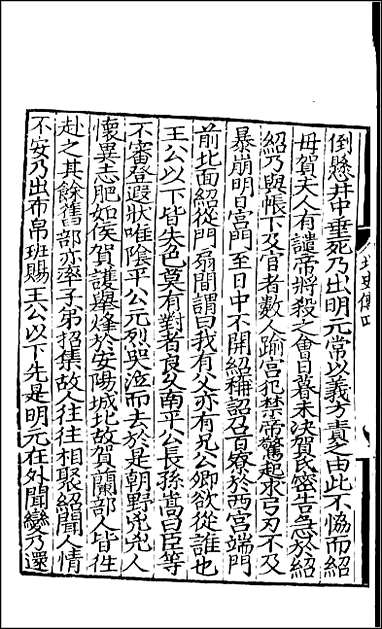 倒懸井中垂死乃出明元常以義方責之由此不恊而紹
母賀夫人有譴帝將殺之會日暮未決賀氏密告急於紹
紹乃與帳下及宦者數人踰宮犯禁帝驚起求弓刀不及
暴崩明日宮門至日中不開紹稱詔召百寮於西宮端門
前北面紹從門扇間謂曰我有父亦有兄公卿欲從誰也
王公以下皆失色莫有對者良久南平公長孫嵩曰臣等
不審登遐狀唯陰平公元烈哭泣而去於是朝野兇兇人
懷異志肥如侯賀護舉烽於安陽城北故賀蘭部人皆往
赴之其餘舊部亦率子弟招集故人往往相聚紹聞人情
不安乃出布帛班賜王公以下先是明元在外聞變乃還
北史傳四